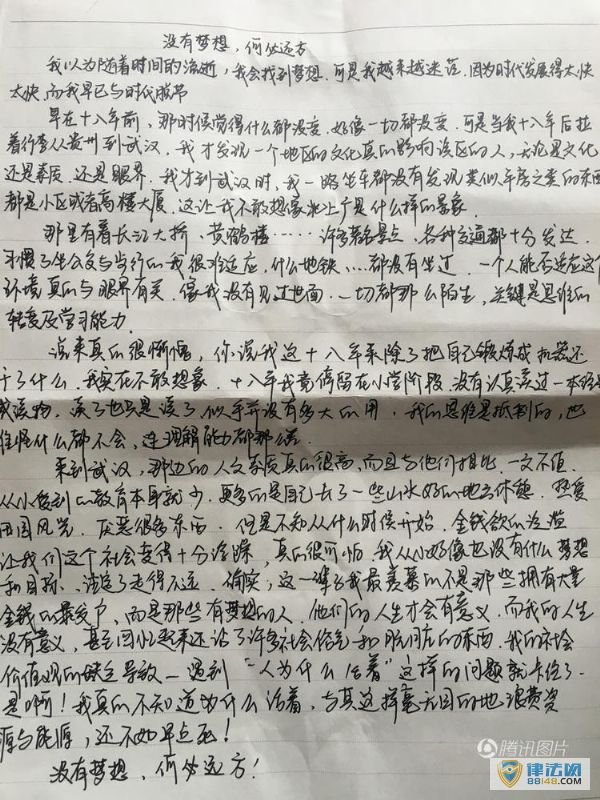 没有梦想,何必远方
我以为随着时间的流逝,我会找到梦想.可是我越来越迷茫.因为时代发展得太快
太快.而我早已与时代脱节
早在十八年前,那时候觉得什么都没变.好像一切都没变.可是当我十八年后拉
着行李从贵州到武汉.我才发现一个地区的文化真的影响该区的人,无论是文化
还是素质.还是眼界.我才到武汉时,我一路坐车都没有发现类似平房之类的东西
都是小区或者高楼大厦.这让我不敢想象北上广是什么样的景象.
那里有着长江大桥、黄鹤楼……许多著名景点,各种交通都十分发达.
习惯了坐公交与步行的我很难适应.什么地铁、…都没有坐过.一个人能否适应这个
环境真的与眼界有关.像我没有见过世面.一切都那么陌生,关键是思维的
转变及学习能力.
说来真的很惭愧,你说我这十八年来除了把自己锻炼成机器还
干了什么.我实在不敢想象.十八年我竟停留在小学阶段.没有认真读过一本经典
或读物.读了也只是读了似乎并没有多大的用.我的思维是抵制的,也
难怪什么都不会,连理解能力都那么差.
来到武汉,那边的人文素质真的很高,而且与他们相比.一文不值.
从小受到的教育本身就少.更多的是自己去了一些山水好的地方休憩.热爱
田园风光.厌恶很多东西.但是不知从什么时候开始.金钱欲的泛滥
让我们这个社会变得十分浮躁.真的很可怕.我从小好像也没有什么梦想
和目标、注定了走得不远.确实;这一辈子我最羡慕的不是那些拥有大量
金钱的暴发户.而是那些有梦想的人.他们的人生才会有意义.而我的人生
没有意义,甚至回忆起来还沾了许多社会俗气和肮脏的东西.我的社会
价值观的缺乏导致一遇到“人为什么活着”这样的问题就卡住了.
是啊!我真的不知道为什么活着,与其这样毫无目的地浪费资
源与能源,还不如早点死!
没有梦想,何必远方!
腾讯图片
律法网
88148.com